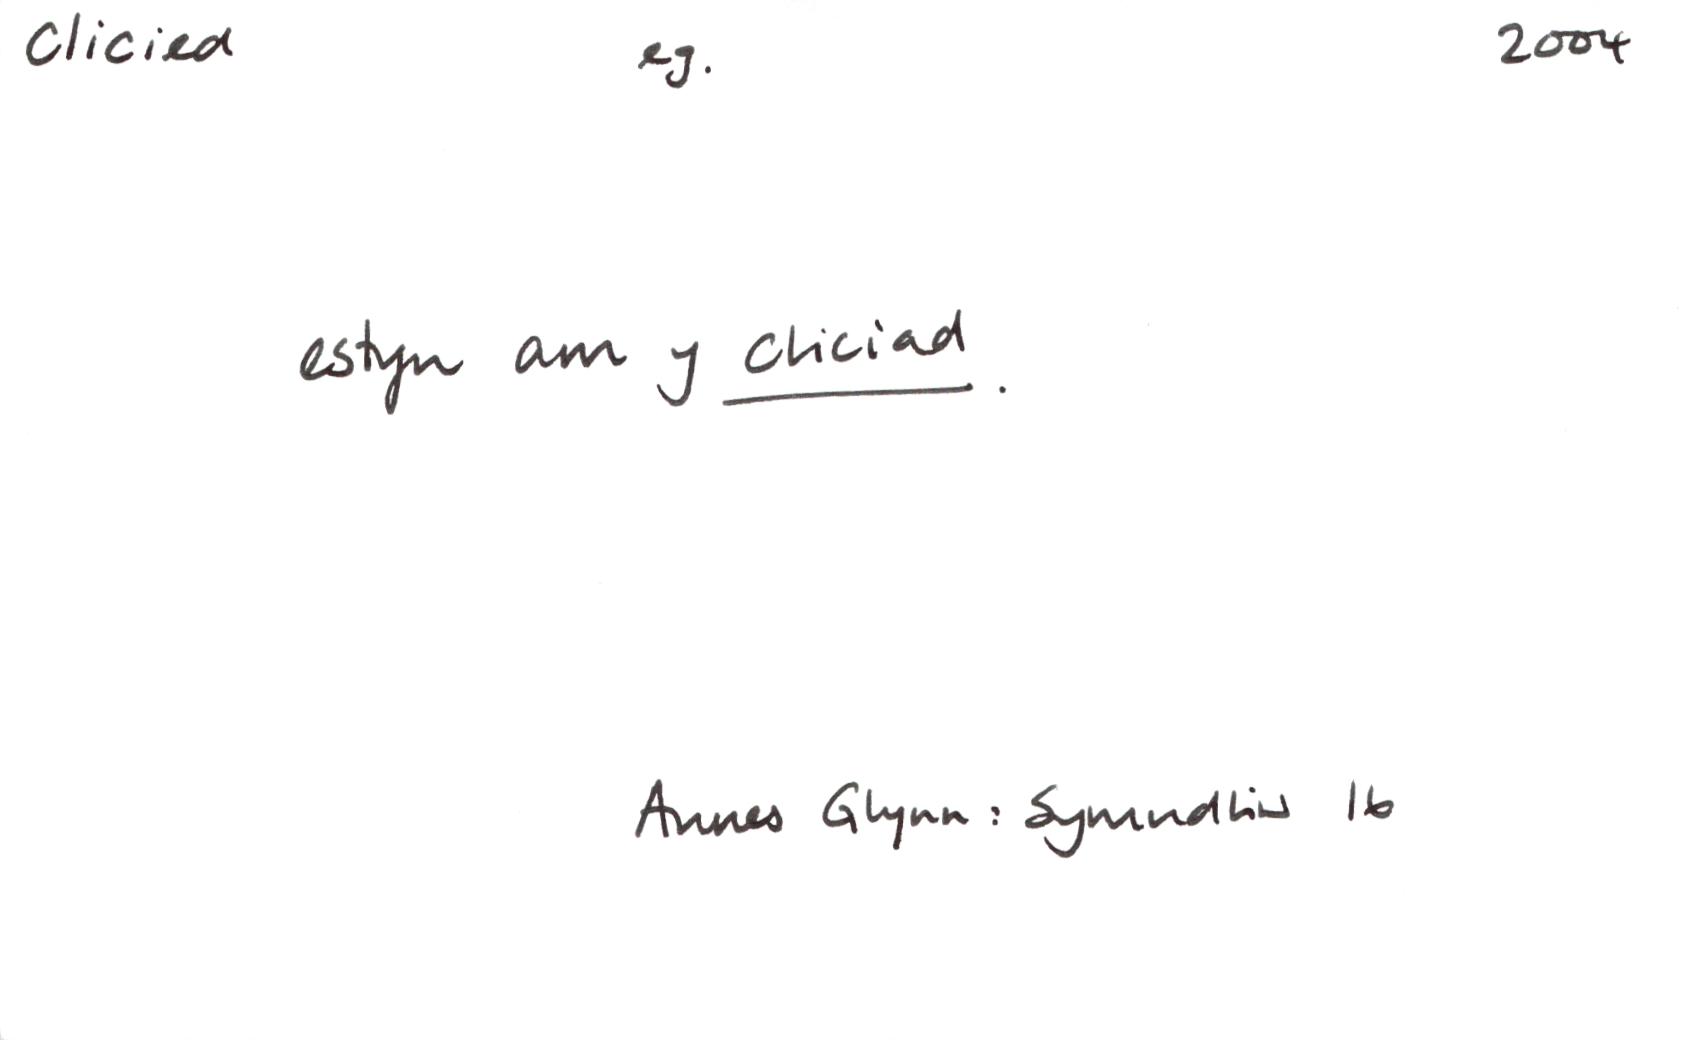 Clicied eg. 2004
estyn am y cliciad.
Annes Glynn: Symudliw 16